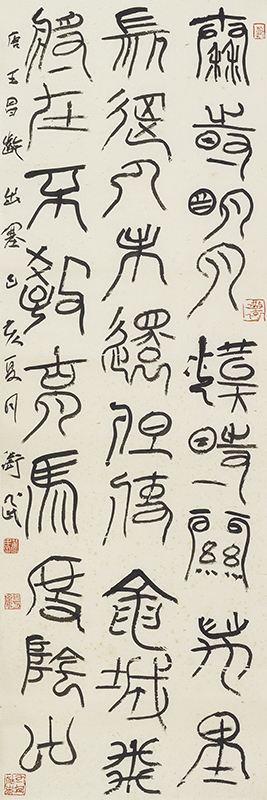 秦時明月漢時關萬里
長征人未還但使龍城飛
將在不教胡馬度陰山
唐王昌齡出塞己亥夏月